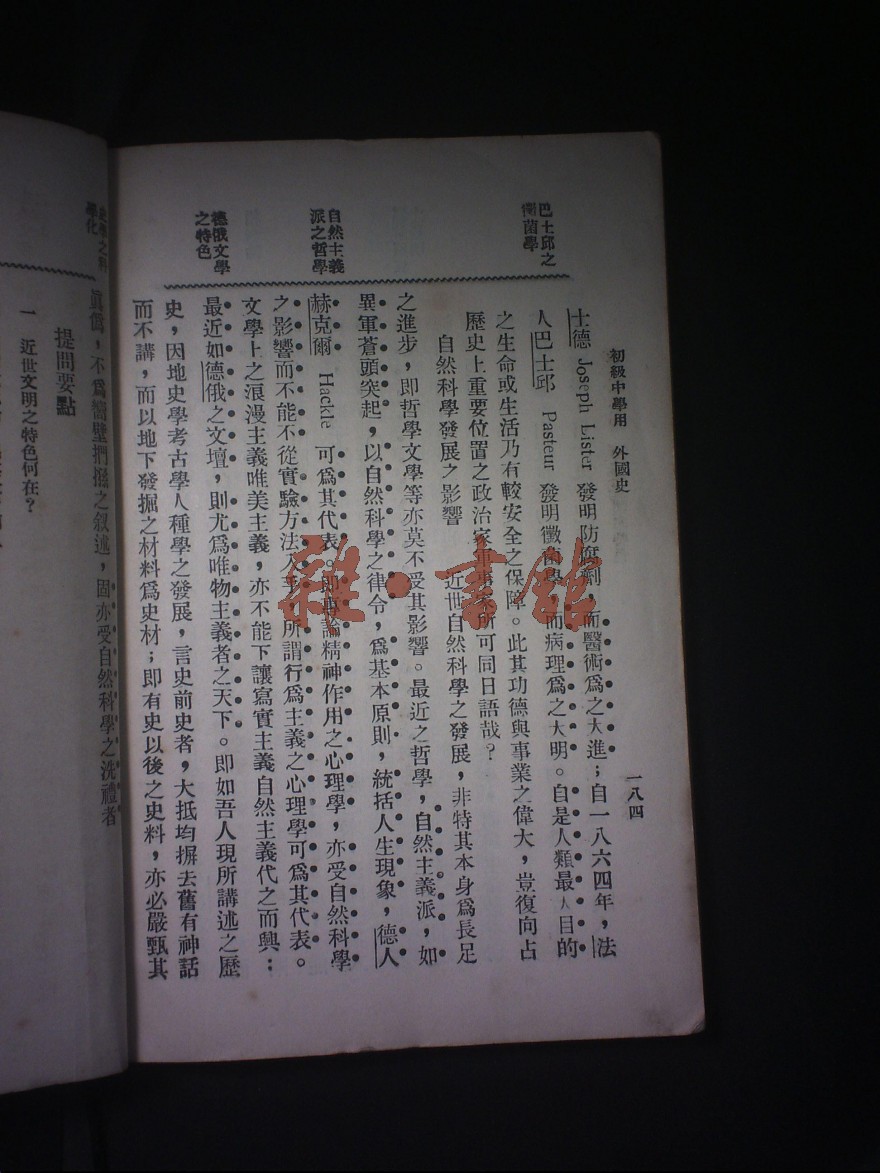 初級中學用 外國史
一八四
巴士邱之
衞菌學
自然主義
派之哲學
德俄文學
之特色
士德 Joseph Lister 發明防腐劑，而醫術爲之大進；自一八六四年，法
人巴士邱 Pasteur 發明黴菌學，而病理爲之大明。自是人類最人目的
之生命或生活乃有較安全之保障。此其功德與事業之偉大，豈復向占
歷史上重要位置之政治家軍事家所可同日語哉？
自然科學發展之影響 近世自然科學之發展，非特其本身爲長足
之進步，即哲學文學等亦莫不受其影響。最近之哲學，自然主義派，如
異軍蒼頭突起，以自然科學之律令，爲基本原則，統括人生現象，德人
赫克爾 Hackle 可爲其代表。即專論精神作用之心理學，亦受自然科學
之影響而不能不從實驗方法入手，所謂行爲主義之心理學可爲其代表。
文學上之浪漫主義唯美主義，亦不能下讓寫實主義自然主義代之而興；
最近如德俄之文壇，則尤爲唯物主義者之天下。即如吾人現所講述之歷
史，因地史學考古學人種學之發展，言史前史者，大抵均摒去舊有神話
而不講，而以地下發掘之材料爲史材；即有史以後之史料，亦必嚴甄其
史學之科
學化
眞僞，不爲牆壁捫撥之叙述，固亦受自然科學之洗禮者
提問要點
一 近世文明之特色何在？
雜·書館